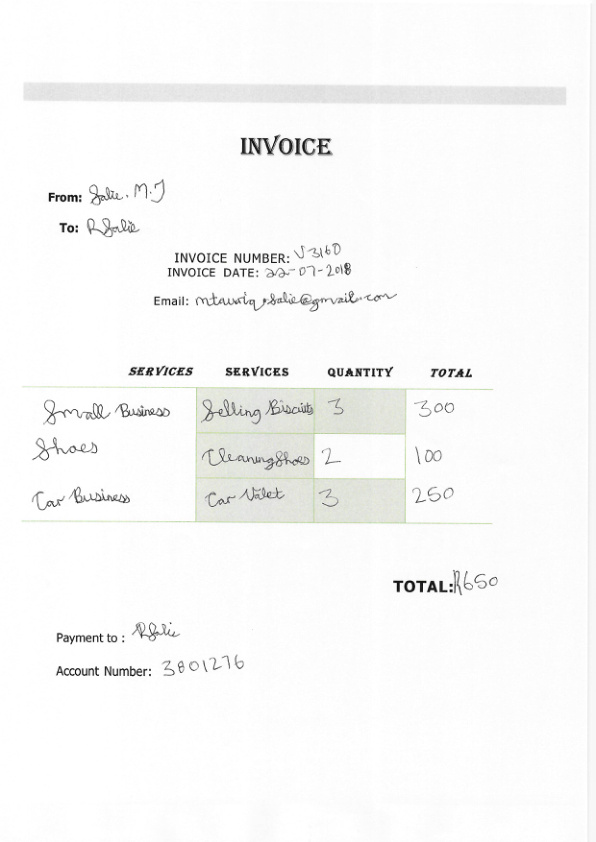 INVOICE
From: Salie. M.T
To: R Salie
INVOICE NUMBER: V3160
INVOICE DATE: 22-07-2018
Email: mtauriq.salie@gmail.com
SERVICES SERVICES QUANTITY TOTAL
Small Business Selling Biscuits 3 300
Shoes Cleaning Shoes 2 100
Car Business Car Valet 3 250
TOTAL: R650
Payment to : R Salie
Account Number: 3801276